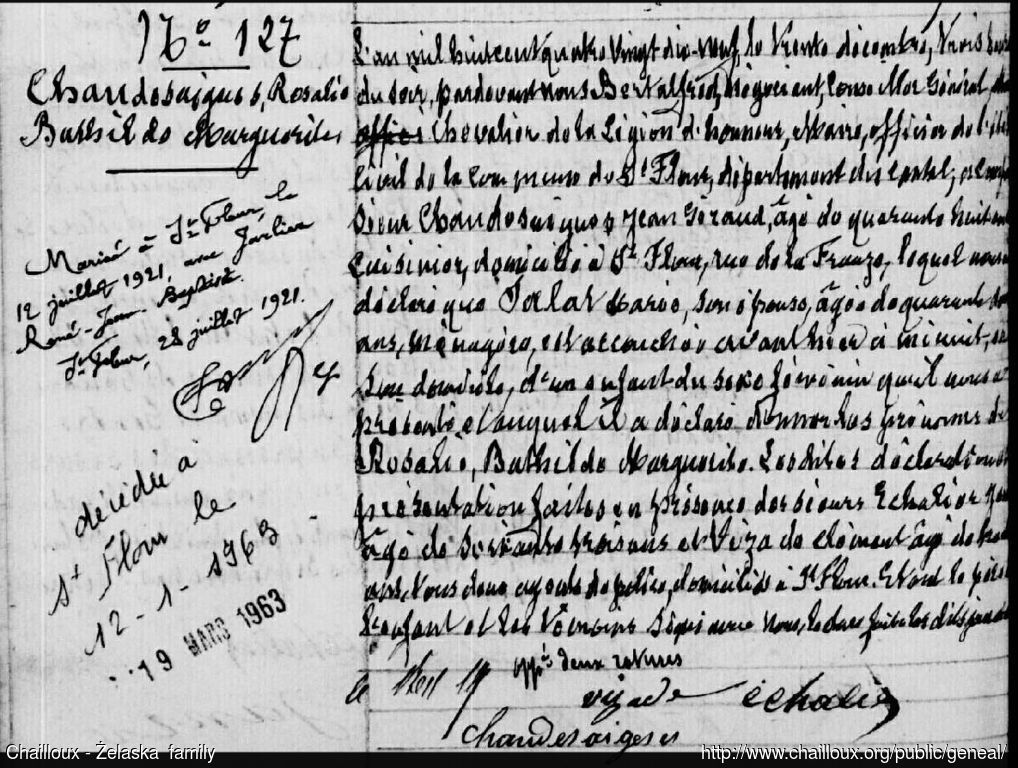 N° 127
Chaudesaigues, Rosalie
Bathilde Marguerite
Mariée à St Flour, le
12 juillet 1921, avec Jarlier
René-Jean Baptiste.
St Flour, 28 juillet 1921.
décédée à
St Flour le
12-1-1963
19 MARS 1963
L'an mil huit cent quatre vingt dix-neuf, le trente décembre, trois heures
du soir, pardevant nous Bert alfred, Négociant, Conseiller Général,
offici Chevalier de la Légion d'honneur, Maire, officier de l'état
Civil de la Commune de St Flour, département du Cantal, est
Sieur Chaudesaigues Jean Géraud, âgé de quarante huit ans
Cuisinier, domicilié à St Flour, rue de la Frauze, lequel nous a
déclaré que Talat Marie, son épouse, âgée de quarante
ans, ménagère, est accouchée avant hier à minuit,
domicile, d'un enfant du sexe féminin qu'il nous a
présenté et auquel il a déclaré donner les prénoms de
Rosalie, Bathilde Marguerite. Lesdites déclaration et
présentation faites en présence des sieurs Echalier
âgé de soixante trois ans et Vizade Clément âgé de
ans, tous deux agents de police, domiciliés à St Flour. Et ont le père
l'enfant et les témoins signé avec nous, lecture faite
appé deux ratures
vizade echalier
chaudesaigues
Chailloux - Żelaska family
http://www.chailloux.org/public/geneal/